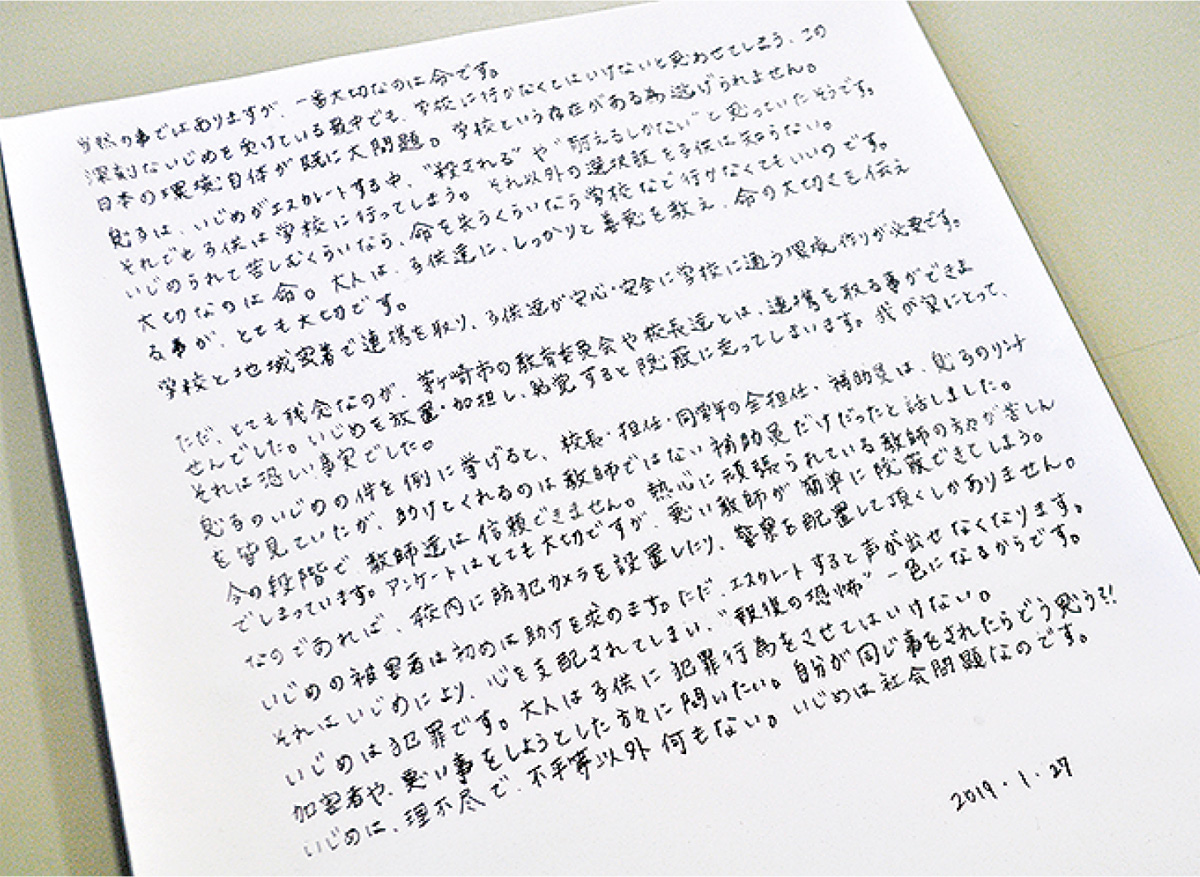 当然の事ではありますが、一番大切なのは命です。
深刻ないじめを受けている最中でも、学校に行かなくてはいけないと思わせてしまう、この
日本の環境自体が既に大問題。学校という存在がある為逃げられません。
息子は、いじめがエスカレートする中、"殺される"や"耐えるしかない"と思っていたそうです。
それでも子供は学校に行ってしまう。それ以外の選択肢を子供は知らない。
いじめられて苦しむくらいなら、命を失うくらいなら学校など行かなくてもいいのです。
大切なのは命。大人は、子供達に、しっかりと善悪を教え、命の大切さを伝え
る事が、とても大切です。
学校と地域密着で連携を取り、子供達が安心・安全に学校に通う環境作りが必要です。
ただ、とても残念なのが、茅ヶ崎市の教育委員会や校長達とは、連携を取る事ができま
せんでした。いじめを放置・加担し、発覚すると隠蔽に走ってしまいます。我が家にとって、
それは恐しい事実でした。
息子のいじめの件を例に挙げると、校長・担任・同学年の全担任・補助員は、息子のリンチ
を皆見ていたが、助けてくれるのは教師ではない補助員だけだったと話しました。
今の段階で、教師達は信頼できません。熱心に頑張られている教師の方々が苦しん
でしまっています。アンケートはとても大切ですが、悪い教師が簡単に隠蔽できてしまう。
なのであれば、校内に防犯カメラを設置したり、警察を配置して頂くしかありません。
いじめの被害者は初めは助けを求めます。ただ、エスカレートすると声が出せなくなります。
それはいじめにより、心を支配されてしまい、"報復の恐怖"一色になるからです。
いじめは犯罪です。大人は子供に犯罪行為をさせてはいけない。
加害者や、悪い事をしようとした方々に聞いたい。自分が同じ事をされたらどう思う?!
いじめに、理不尽で、不平等以外何もない。いじめは社会問題なのです。
2019.1.27